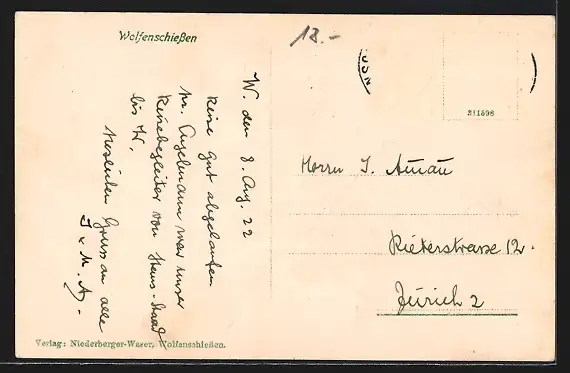 Wolfenschießen
13.-
W. den 8. Aug. 22
Reise gut abgelaufen
Hr. Angelmann war unser
Reisebegleiter von Stans-staad
bis W.
Herzlichen Gruss an alle
J & M. A.
Herrn J. Aunau
Rieterstrasse 12.
Zürich 2
311598
Verlag: Niederberger-Waser, Wolfenschießen.